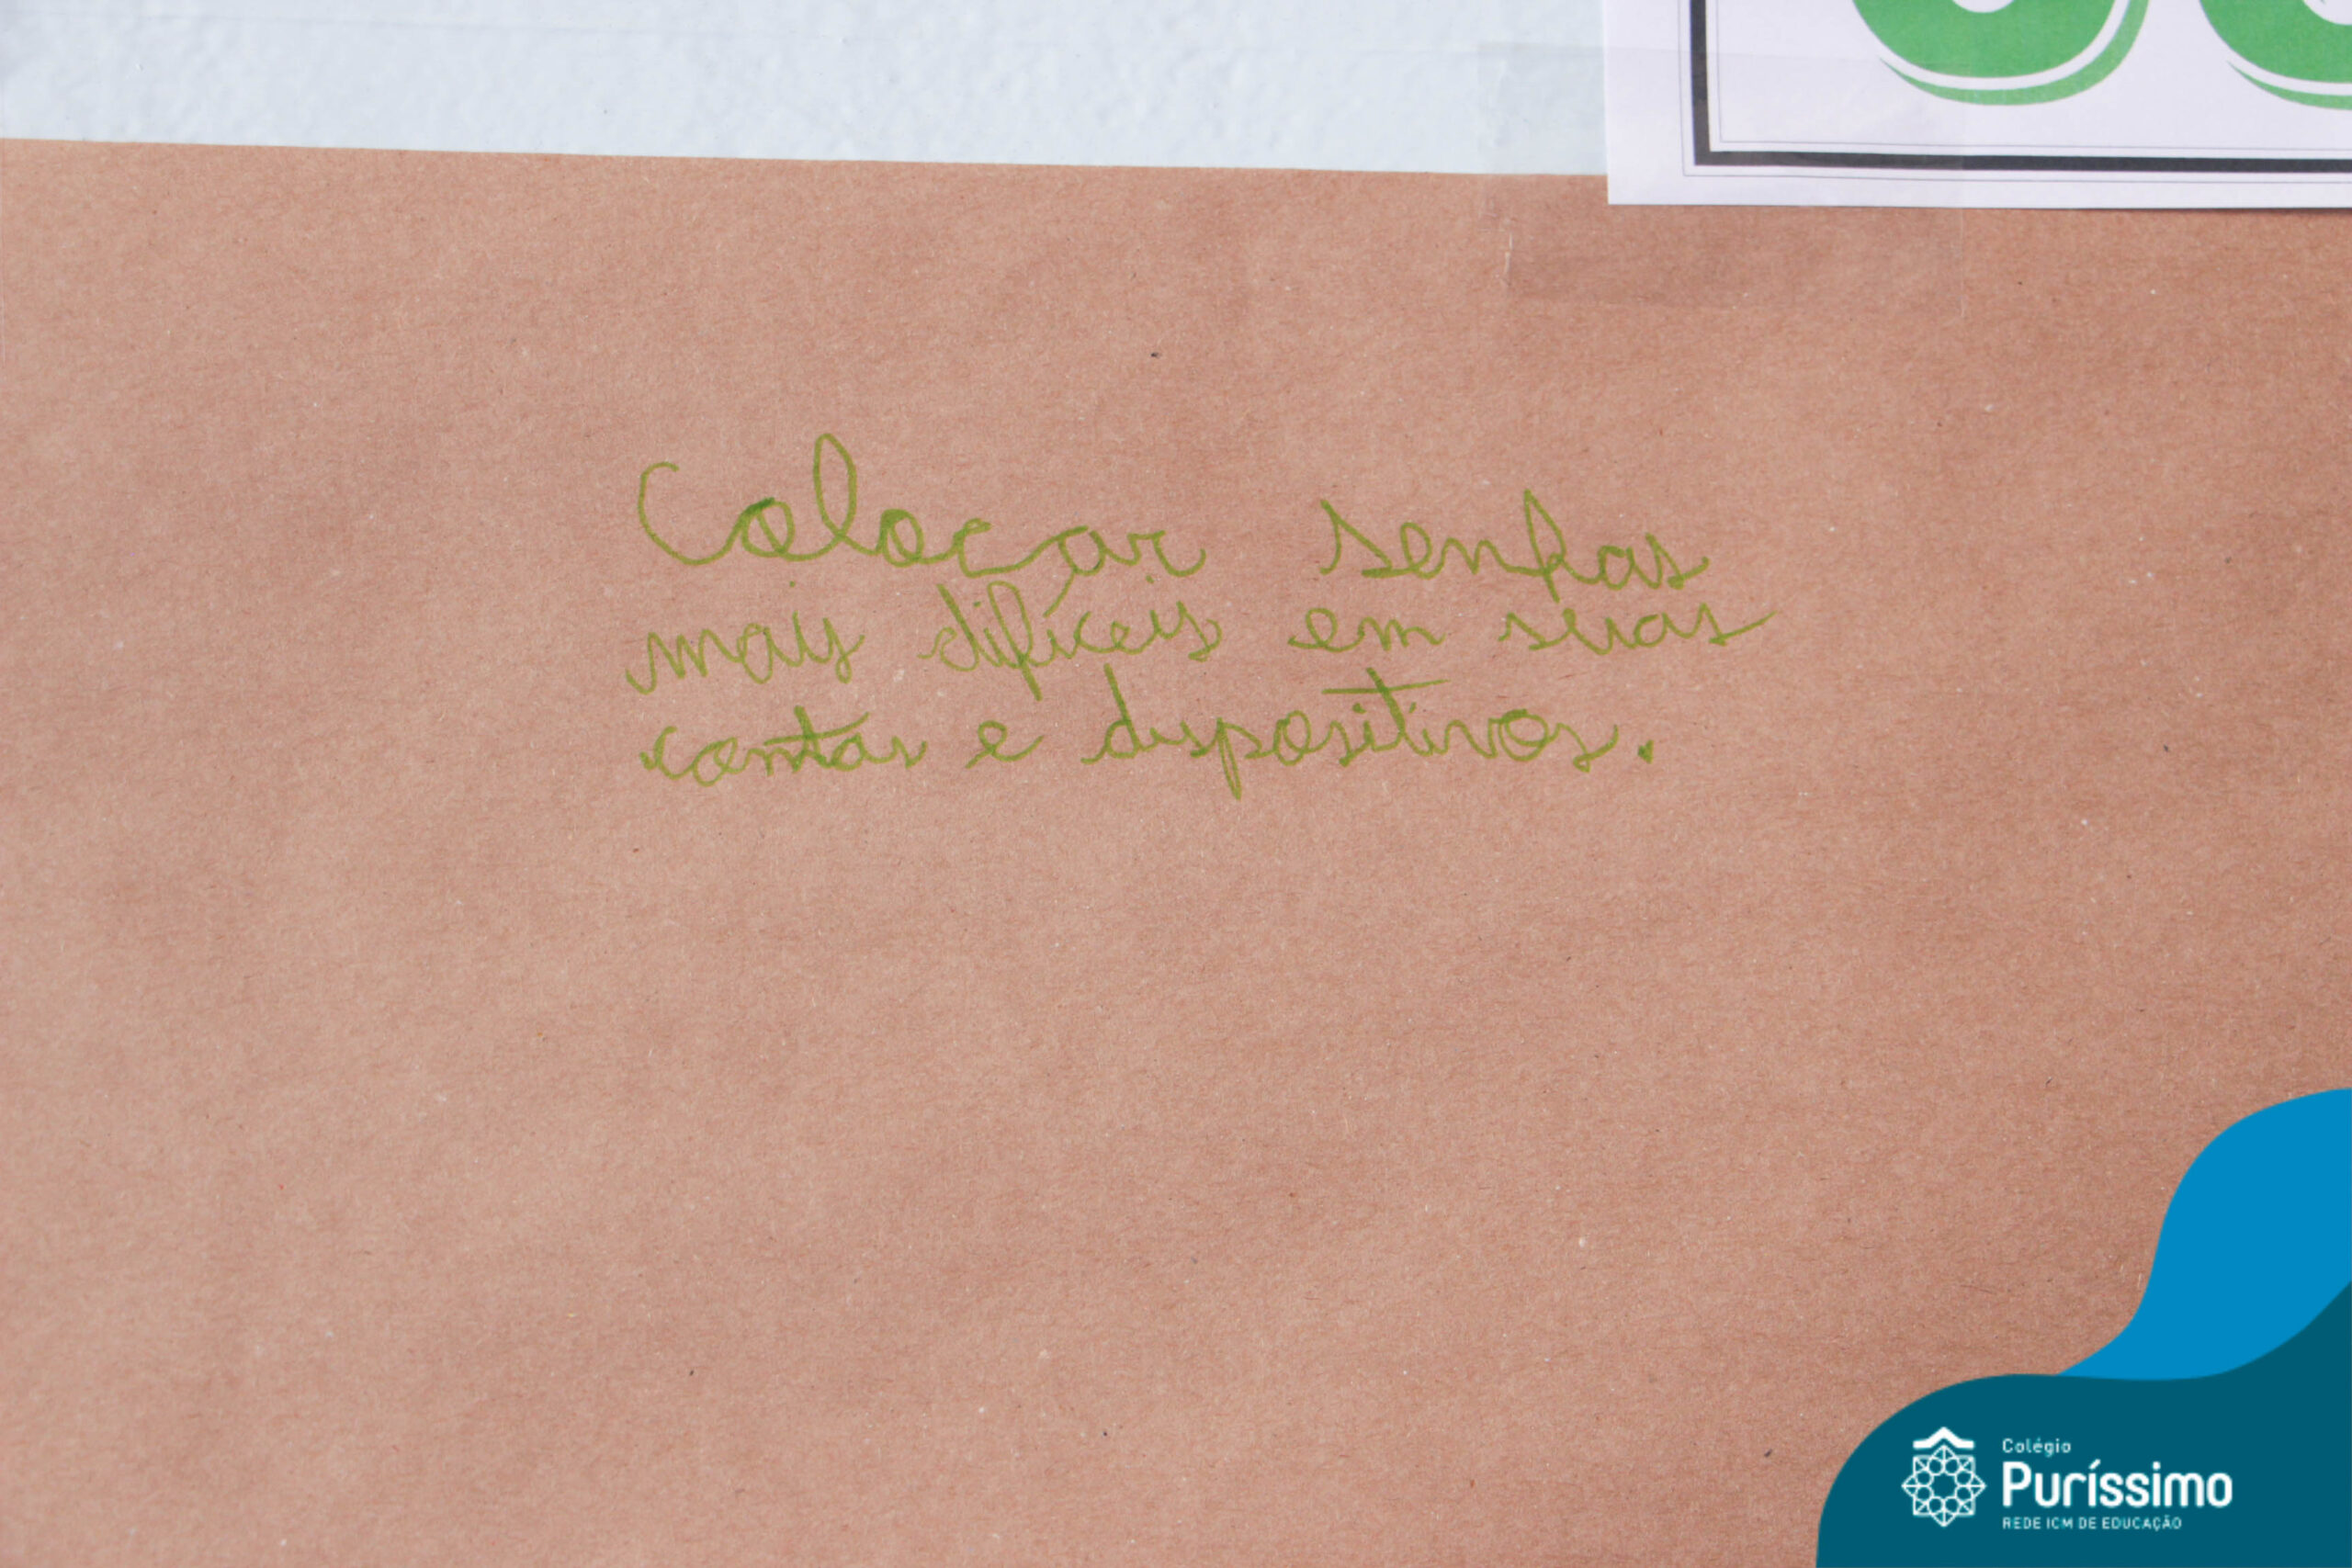 Colocar senhas
mais difíceis em suas
contas e dispositivos.
Colégio
Puríssimo
REDE ICM DE EDUCAÇÃO